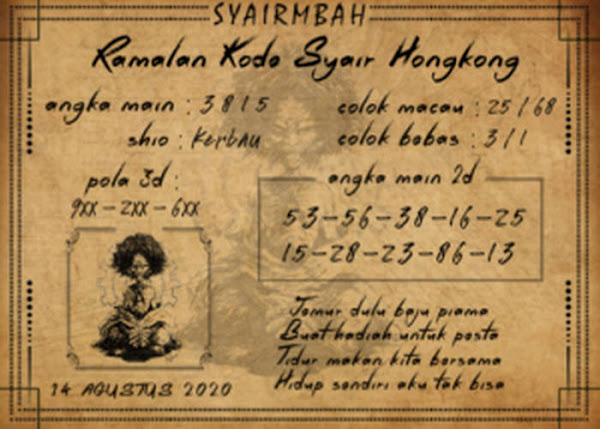 SYAIRMBAH
Ramalan Kode Syair Hongkong
angka main : 3 8 1 5
colok macau : 25 / 68
shio : Kerbau
colok bebas : 3 / 1
pola 3d :
9xx - 2xx - 6xx
angka main 2d
53 - 56 - 38 - 16 - 25
15 - 28 - 23 - 86 - 13
Jemur dulu baju piama
Buat hadiah untuk pesta
Tidur makan kita bersama
Hidup sendiri aku tak bisa
14 AGUSTUS 2020